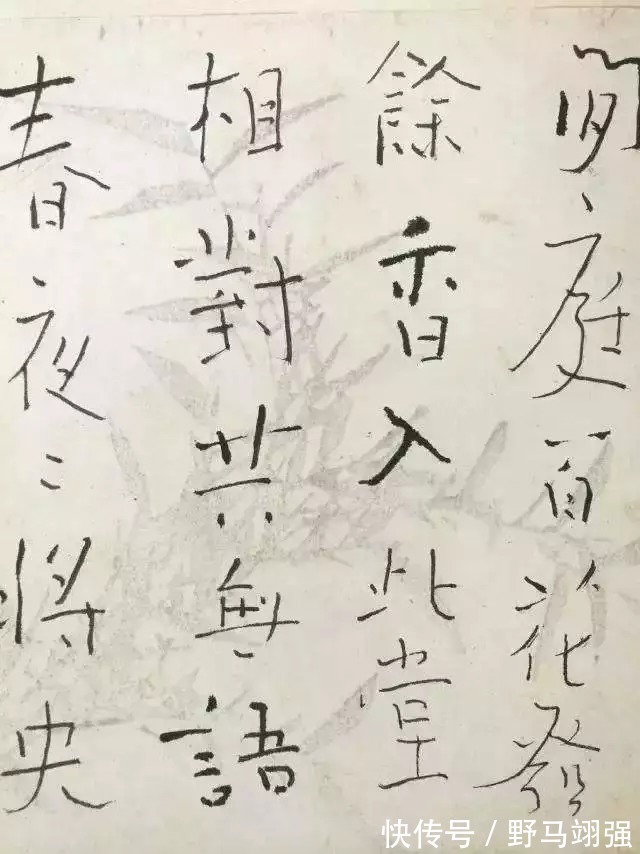 閒庭百花發
餘香入此堂
相對共無語
春夜〻將央
快传号 / 野马翊强